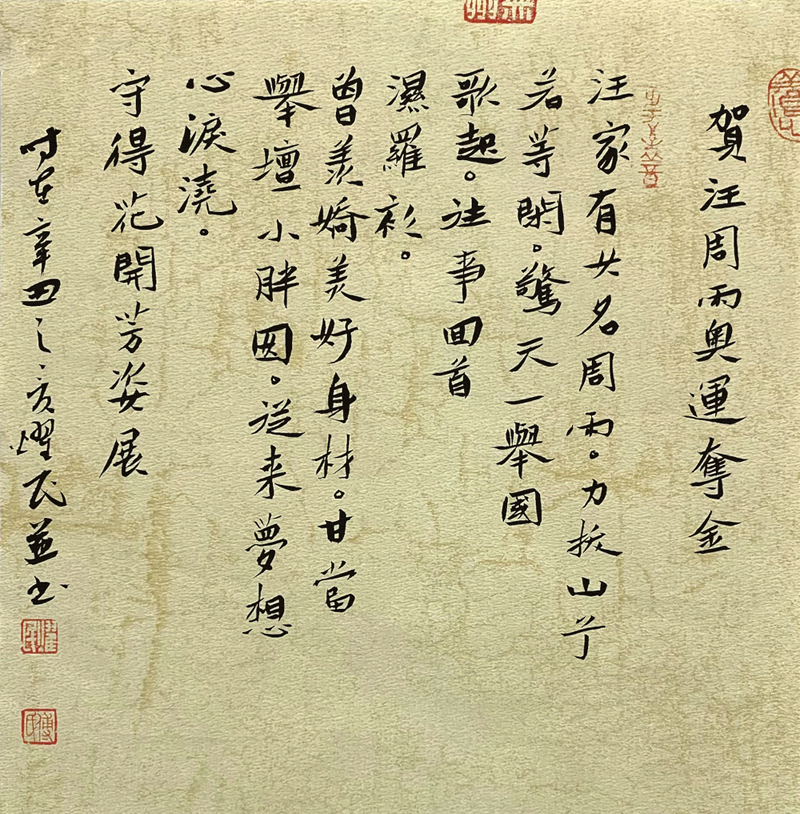 賀汪周雨奧運奪金
汪家有女名周雨。力拔山兮
若等閑。驚天一舉國
歌起。往事回首
濕羅衫。
曾羨嬌美好身材。甘當
舉壇小胖囡。從来夢想
心淚澆。
守得花開芳姿展
时在辛丑之夏燿民並书
傅氏